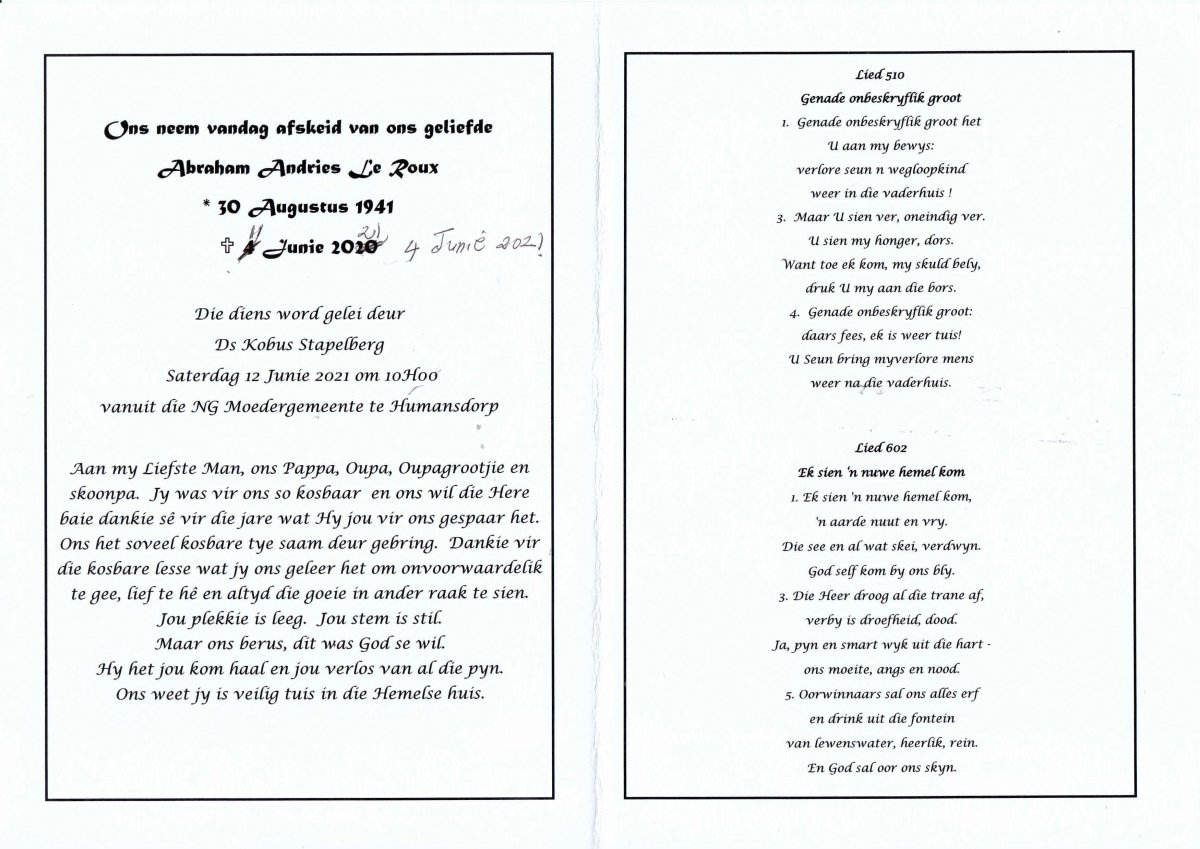 Ons neem vandag afskeid van ons geliefde
Abraham Andries Le Roux
* 30 Augustus 1941
✝ 4 Junie 2020 21 4 Junié 2021
Die diens word gelei deur
Ds Kobus Stapelberg
Saterdag 12 Junie 2021 om 10H00
vanuit die NG Moedergemeente te Humansdorp
Aan my Liefste Man, ons Pappa, Oupa, Oupagrootjie en
skoonpa. Jy was vir ons so kosbaar en ons wil die Here
baie dankie sê vir die jare wat Hy jou vir ons gespaar het.
Ons het soveel kosbare tye saam deur gebring. Dankie vir
die kosbare lesse wat jy ons geleer het om onvoorwaardelik
te gee, lief te hê en altyd die goeie in ander raak te sien.
Jou plekkie is leeg. Jou stem is stil.
Maar ons berus, dit was God se wil.
Hy het jou kom haal en jou verlos van al die pyn.
Ons weet jy is veilig tuis in die Hemelse huis.
Lied 510
Genade onbeskryflik groot
1. Genade onbeskryflik groot het
U aan my bewys:
verlore seun n wegloopkind
weer in die vaderhuis !
3. Maar U sien ver, oneindig ver.
U sien my honger, dors.
Want toe ek kom, my skuld bely,
druk U my aan die bors.
4. Genade onbeskryflik groot:
daars fees, ek is weer tuis!
U Seun bring myverlore mens
weer na die vaderhuis.
Lied 602
Ek sien 'n nuwe hemel kom
1. Ek sien 'n nuwe hemel kom,
'n aarde nuut en vry.
Die see en al wat skei, verdwyn.
God self kom by ons bly.
3. Die Heer droog al die trane af,
verby is droefheid, dood.
Ja, pyn en smart wyk uit die hart -
ons moeite, angs en nood.
5. Oorwinnaars sal ons alles erf
en drink uit die fontein
van lewenswater, heerlik, rein.
En God sal oor ons skyn.